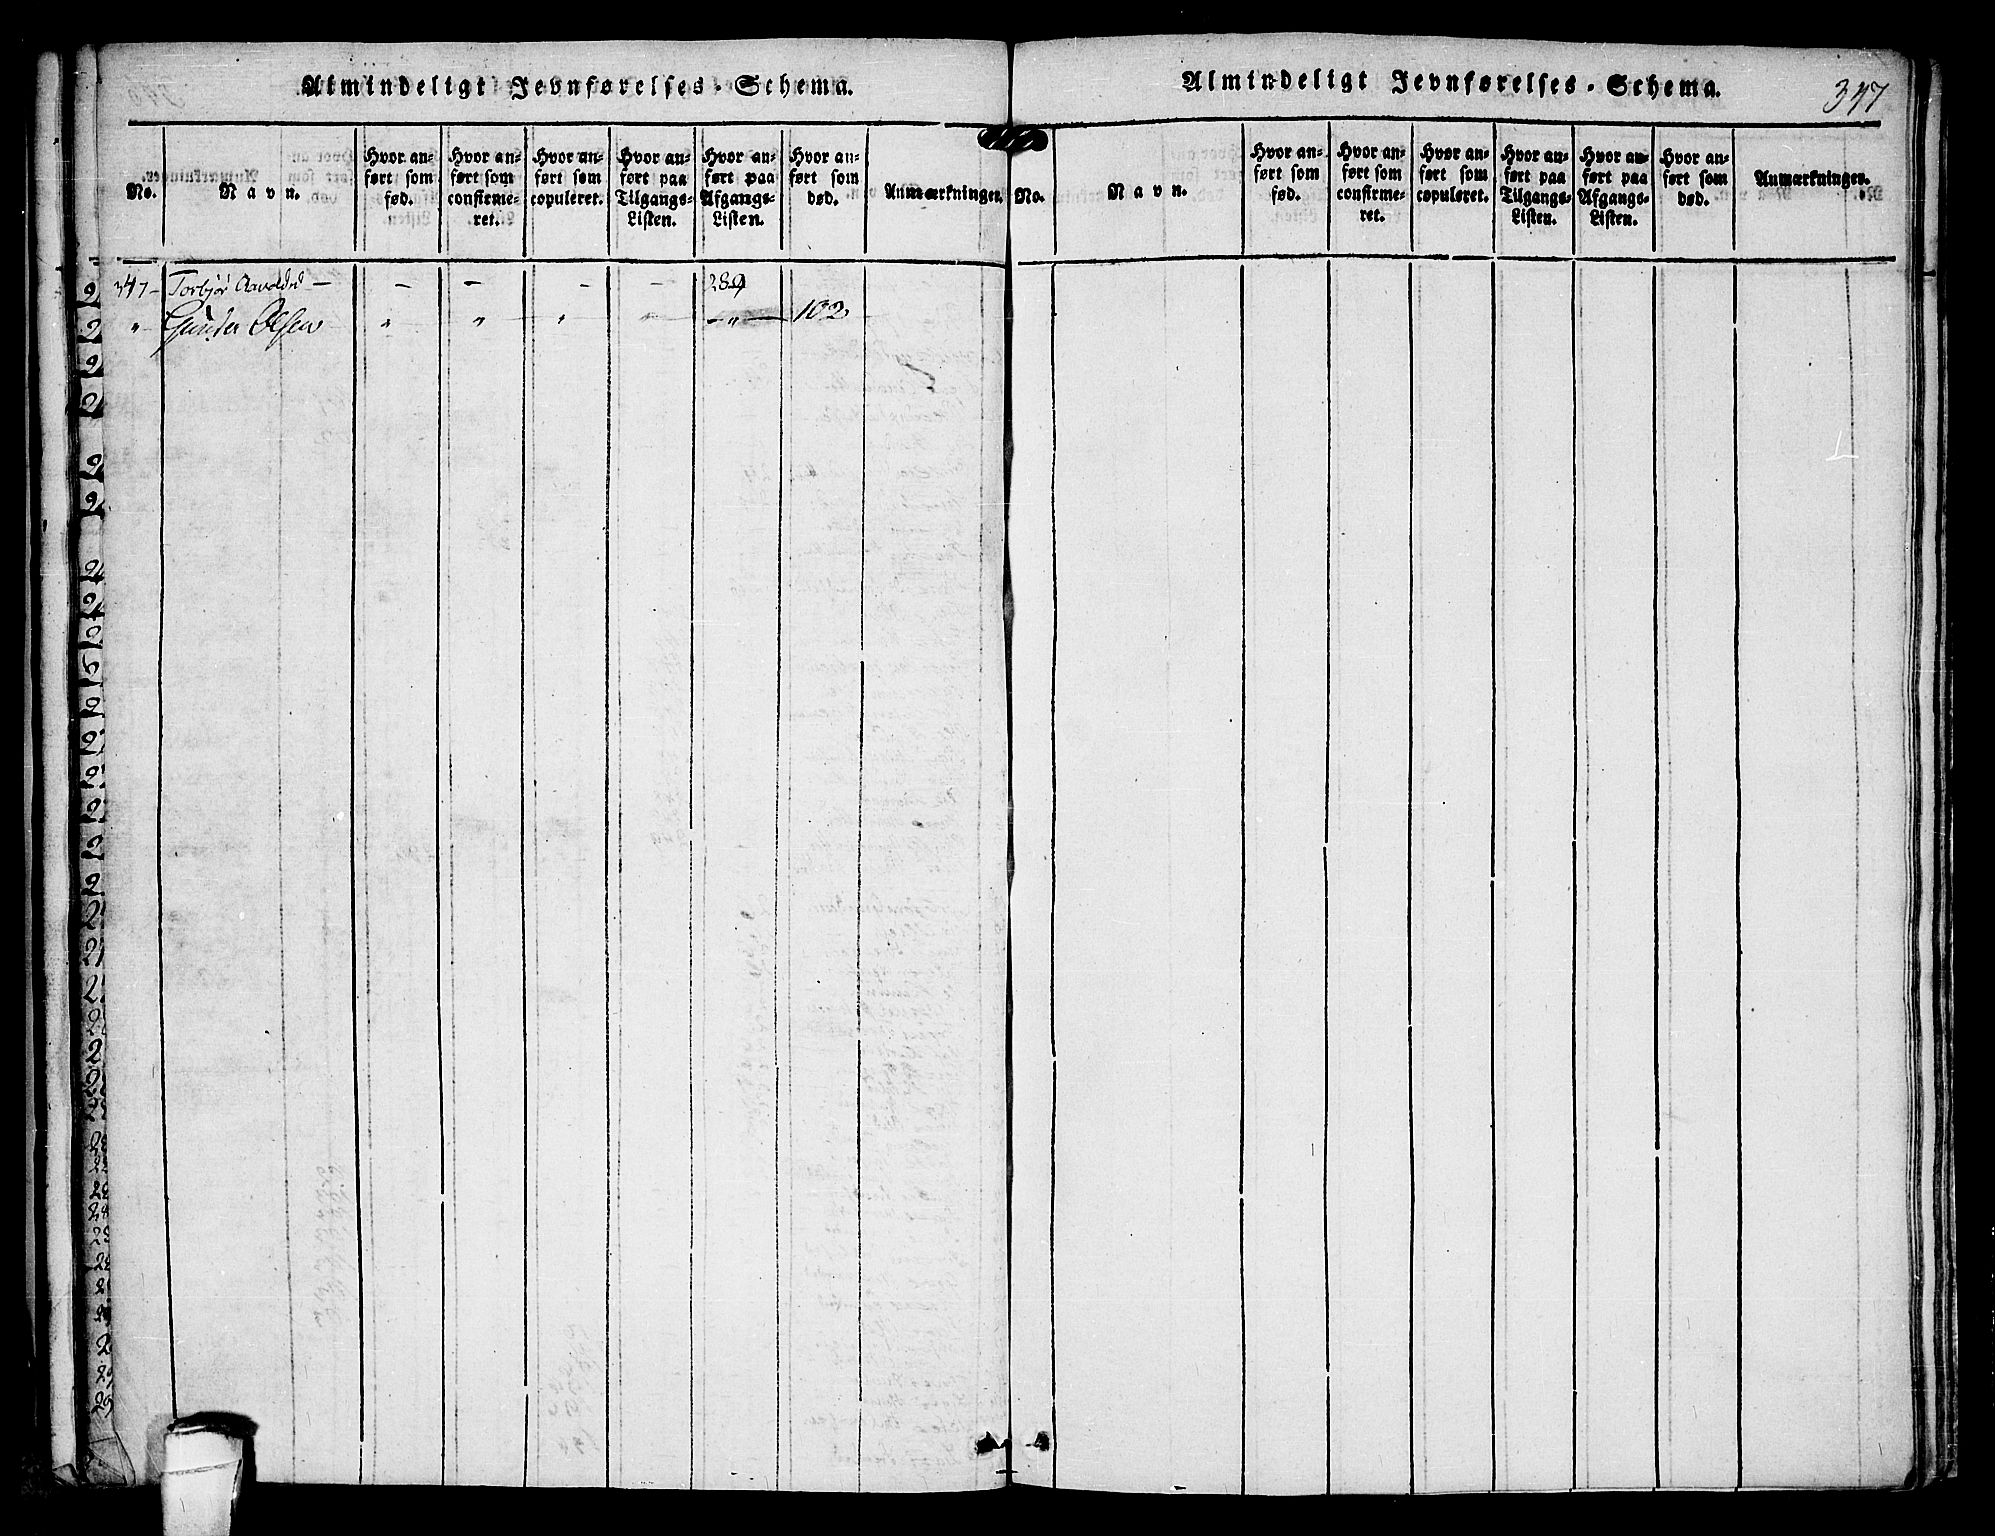 Almindeligt Jevnførelses-Schema.
No.
Navn.
Hvor anført som fød.
Hvor anført som confirmeret.
Hvor anført som copuleret.
Hvor anført paa Tilgangs-Listen.
Hvor anført paa Afgangs-Listen.
Hvor anført som død.
Anmærkninger.
347 - Torbjør - - - - - 289
" Gunder Olsen " " " - " - 102
Almindeligt Jevnførelses-Schema.
347
No.
Navn.
Hvor anført som fød.
Hvor anført som confirmeret.
Hvor anført som copuleret.
Hvor anført paa Tilgangs-Listen.
Hvor anført paa Afgangs-Listen.
Hvor anført som død.
Anmærkninger.